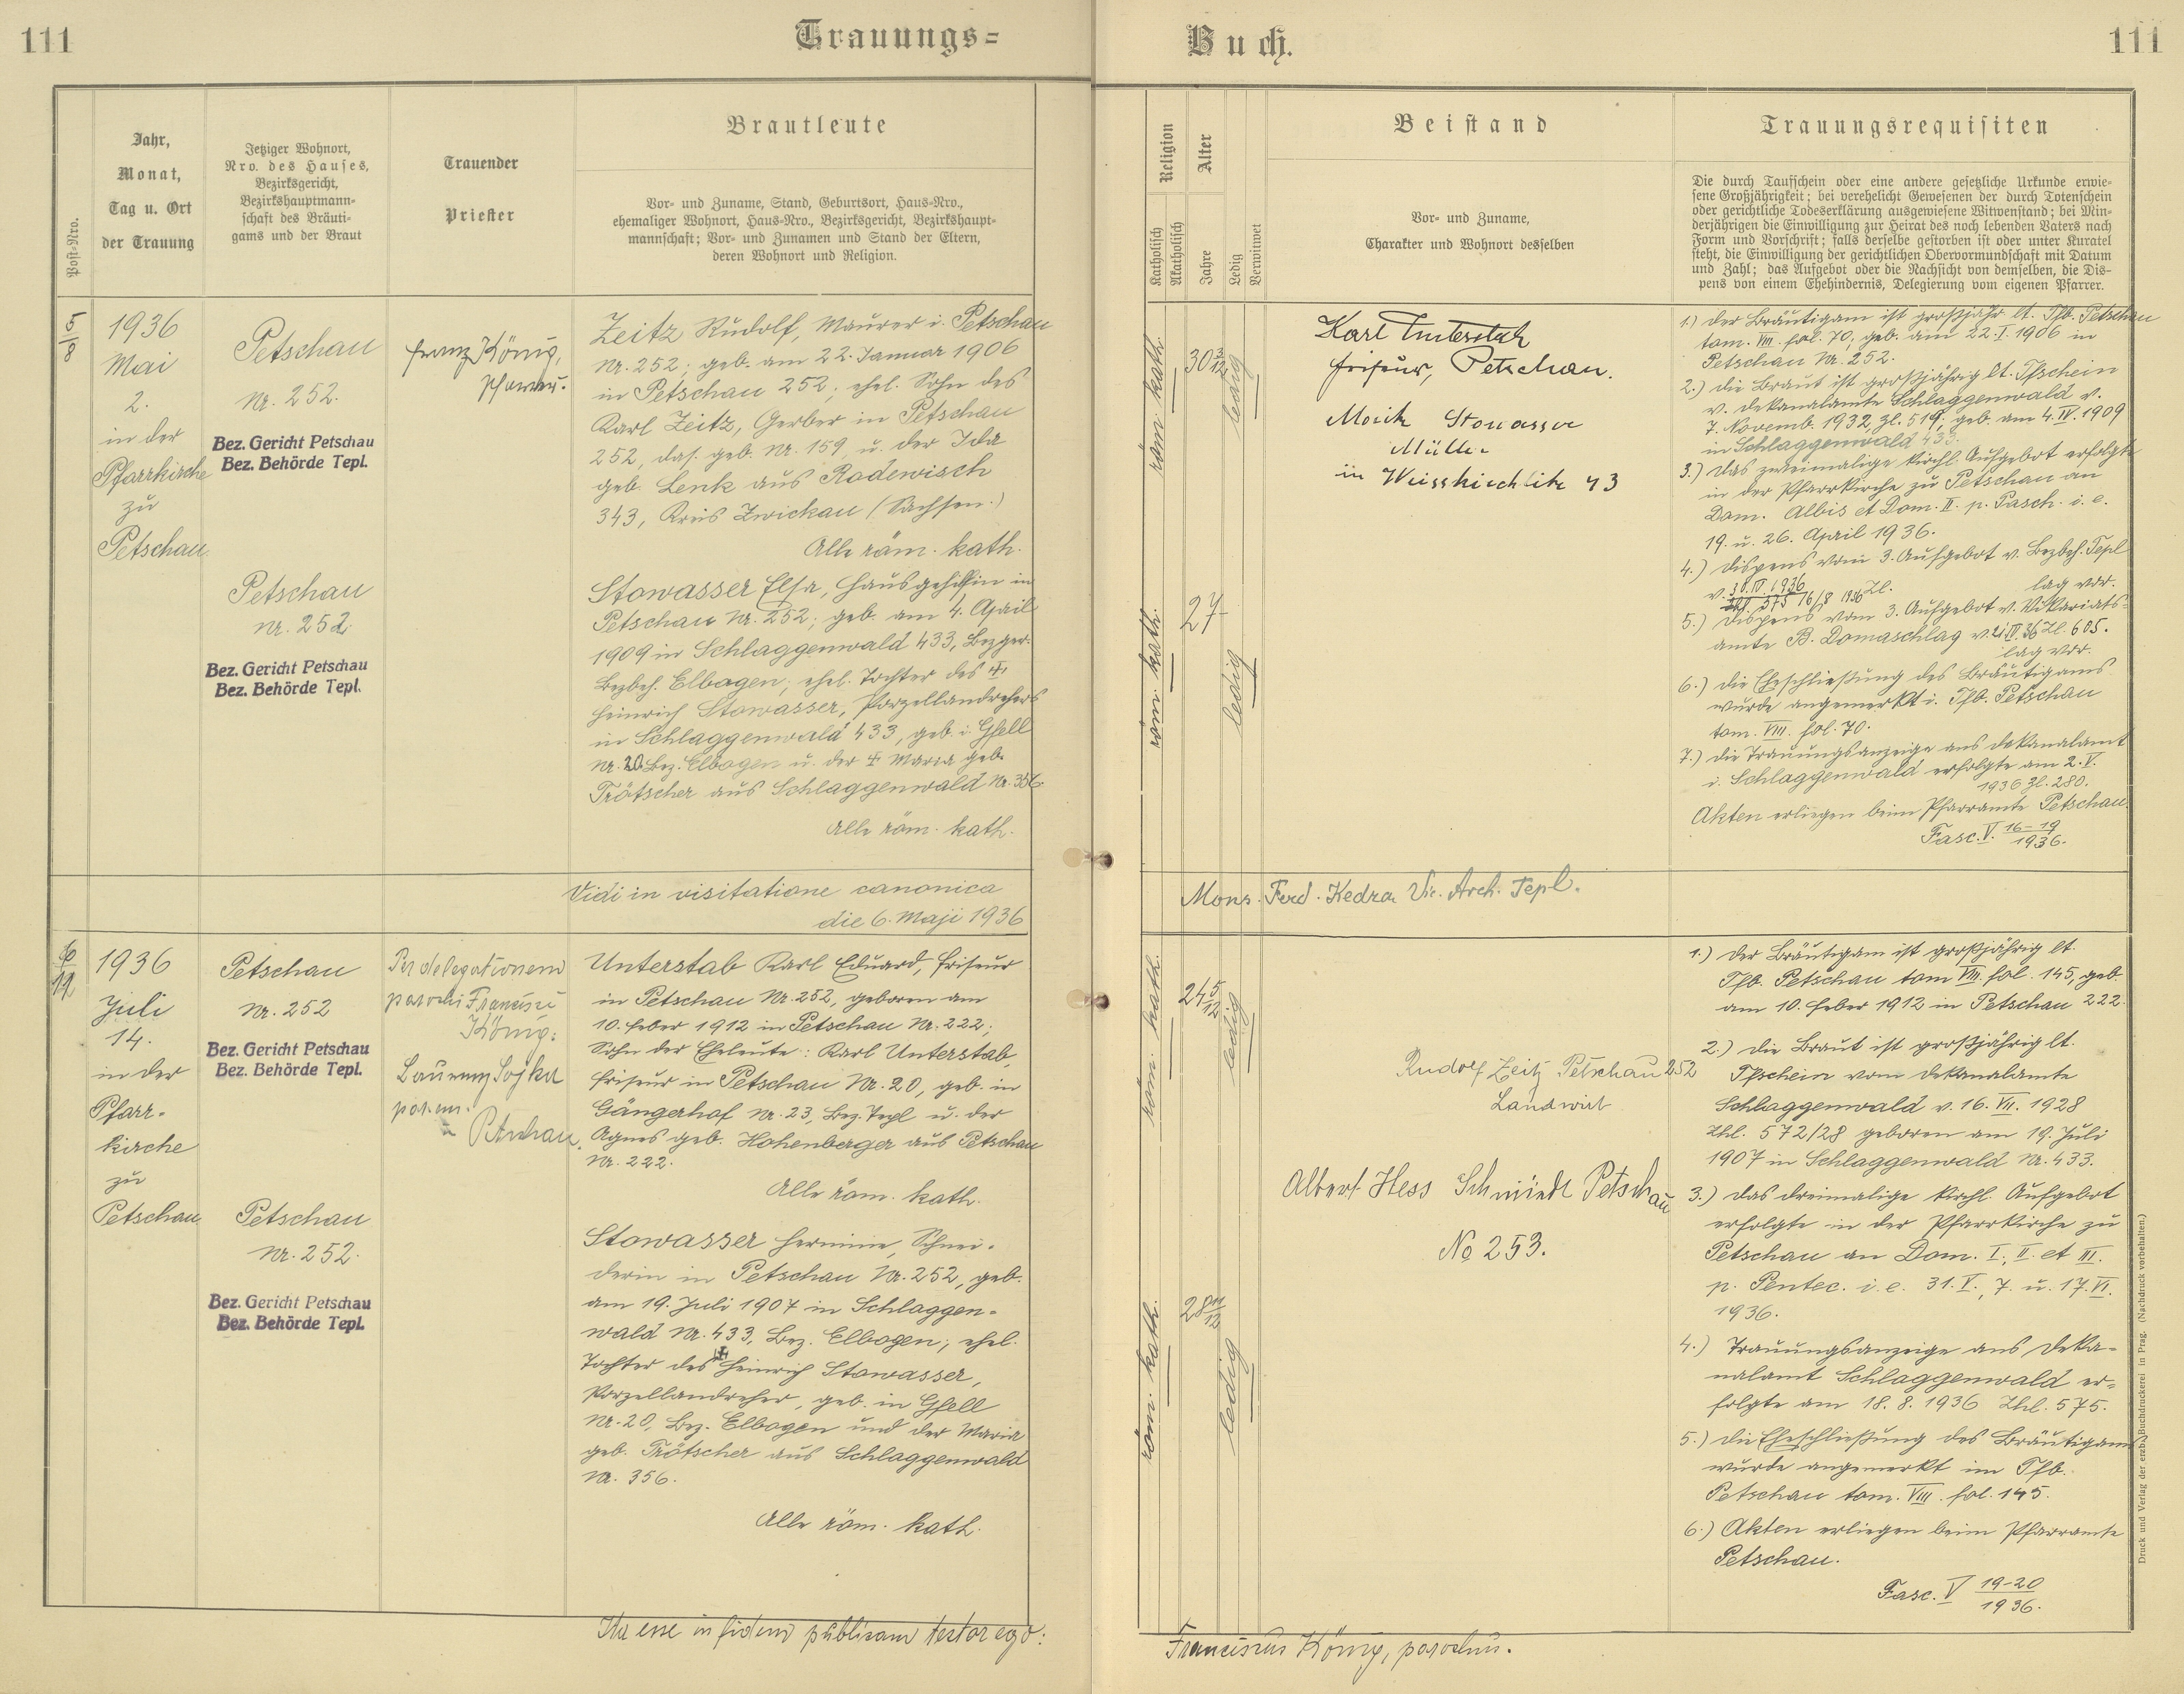 111
Trauungs=
Buch.
111
Post-Nro.
Jahr,
Monat,
Tag u. Ort
der Trauung
Jetziger Wohnort,
Nro. des Hauses,
Bezirksgericht,
Bezirkshauptmann-
schaft des Bräuti-
gams und der Braut
Trauender
Priester
Brautleute
Vor- und Zuname, Stand, Geburtsort, Haus-Nro.,
ehemaliger Wohnort, Haus-Nro., Bezirksgericht, Bezirkshaupt-
mannschaft; Vor- und Zunamen und Stand der Eltern,
deren Wohnort und Religion.
Religion
Katholisch
Akatholisch
Alter
Jahre
Ledig
Verwitwet
Beistand
Vor- und Zuname,
Charakter und Wohnort desselben
Trauungsrequisiten
Die durch Taufschein oder eine andere gesetzliche Urkunde erwie-
sene Großjährigkeit; bei verehelicht Gewesenen der durch Totenschein
oder gerichtliche Todeserklärung ausgewiesene Witwenstand; bei Min-
derjährigen die Einwilligung zur Heirat des noch lebenden Vaters nach
Form und Vorschrift; falls derselbe gestorben ist oder unter Kuratel
steht, die Einwilligung der gerichtlichen Obervormundschaft mit Datum
und Zahl; das Aufgebot oder die Nachsicht von demselben, die Dis-
pens von einem Ehehindernis, Delegierung vom eigenen Pfarrer.
5/8
1936
Mai
2.
in der
Pfarrkirche
zu
Petschau
Petschau
Nr. 252.
Bez. Gericht Petschau
Bez. Behörde Tepl.
Petschau
Nr. 252.
Bez. Gericht Petschau
Bez. Behörde Tepl.
Franz König,
Pfarrer.
Zeitz Rudolf, Maurer i. Petschau
Nr. 252; geb. am 22. Januar 1906
in Petschau 252; ehel. Sohn des
Karl Zeitz, Gerber in Petschau
252, das. geb. Nr. 159, u. der Ida
geb. Lenk aus Rodewisch
343, Kreis Zwickau (Sachsen.)
Alle röm. kath.
Stowasser Elsa, Hausgehilfin in
Petschau Nr. 252; geb. am 4. April
1909 in Schlaggenwald 433, Bezger.
Bezbeh. Elbogen; ehel. Tochter des ✠
Heinrich Stowasser, Porzellandrehers
in Schlaggenwald 433, geb. i. Gfell
Nr. 20 Bez. Elbogen u. der ✠ Maria geb.
Trötscher aus Schlaggenwald Nr. 356.
Alle röm. kath.
röm. kath.
30 3/12
ledig
röm. kath.
27
ledig
Karl Unterstab
Friseur, Petschau.
Stowasser
Müller
in Weisskirchlitz 43
1.) Der Bräutigam ist großjähr. lt. Tfb. Petschau
tom. VIII. fol. 70, geb. am 22. I. 1906 in
Petschau Nr. 252.
2.) Die Braut ist großjährig lt. Tfschein
v. Dekanalamte Schlaggenwald v.
7. Novemb. 1932, Zl. 519, geb. am 4. IV. 1909
in Schlaggenwald 433.
3.) Das zweimalige kirchl. Aufgebot erfolgte
in der Pfarrkirche zu Petschau an
Dom. Albis et Dom. II. p. Pasch. i. e.
19. u. 26. April 1936.
4.) Dispens vom 3. Aufgebot v. Bezbeh. Tepl
v. 30. IV. 1936 Zl. lag vor.
5.) Dispens vom 3. Aufgebot v. Vikariats-
amte B. Domaschlag v. 21. IV. 36 Zl. 605.
lag vor.
6.) Die Eheschließung des Bräutigams
wurde angemerkt i. Tfb. Petschau
tom. VIII. fol. 70.
7.) Die Trauungsanzeige ans Dekanalamt
i. Schlaggenwald erfolgte am 2. V.
1936 Zl. 280.
Akten erliegen beim Pfarramte Petschau.
Fasc. V. 16–19/1936.
Vidi in visitatione canonica
die 6. Maji 1936
Mons. Ferd. Kedra Vic. Arch. Tepl.
6/
1936
Juli
14.
in der
Pfarr-
kirche
zu
Petschau
Petschau
Nr. 252
Bez. Gericht Petschau
Bez. Behörde Tepl.
Petschau
Nr. 252.
Bez. Gericht Petschau
Bez. Behörde Tepl.
Per delegationem
parochi Francisci
König:
Sojka
Petschau.
Unterstab Karl Eduard, Friseur
in Petschau Nr. 252, geboren am
10. Feber 1912 in Petschau Nr. 222;
Sohn der Eheleute: Karl Unterstab,
Friseur in Petschau Nr. 20, geb. in
Gängerhof Nr. 23, Bez. Tepl u. der
Agnes geb. Hohenberger aus Petschau
Nr. 222.
Alle röm. kath.
Stowasser Hermine, Schnei-
derin in Petschau Nr. 252, geb.
am 19. Juli 1907 in Schlaggen-
wald Nr. 433, Bez. Elbogen; ehel.
Tochter des ✠ Heinrich Stowasser,
Porzellandreher, geb. in Gfell
Nr. 20, Bez. Elbogen und der Maria
geb. Trötscher aus Schlaggenwald
Nr. 356.
Alle röm. kath.
röm. kath.
24 5/12
ledig
röm. kath.
28 11/12
ledig
Rudolf Zeitz Petschau 252
Landwirt
Albert Hess Schmiedt Petschau
No 253.
1.) Der Bräutigam ist großjährig lt.
Tfb. Petschau tom VIII. fol. 145, geb.
am 10. Feber 1912 in Petschau 222.
2.) Die Braut ist großjährig lt.
Tfschein vom Dekanalamte
Schlaggenwald v. 16. VII. 1928
Zhl. 572/28 geboren am 19. Juli
1907 in Schlaggenwald Nr. 433.
3.) Das dreimalige kirchl. Aufgebot
erfolgte in der Pfarrkirche zu
Petschau an Dom. I., II. et III.
p. Pentec. i. e. 31. V., 7. u. 17. VI.
1936.
4.) Trauungsanzeige ans Deka-
nalamt Schlaggenwald er-
folgte am 18. 8. 1936 Zhl. 575.
5.) Die Eheschließung des Bräutigams
wurde angemerkt im Tfb.
Petschau tom. VIII. fol. 145.
6.) Akten erliegen beim Pfarramte
Petschau.
Fasc. V 19–20/1936.
Ita esse in fidem publicam testor ego:
Franciscus König, parochus.
Druck und Verlag der erzb. Buchdruckerei in Prag. (Nachdruck vorbehalten.)